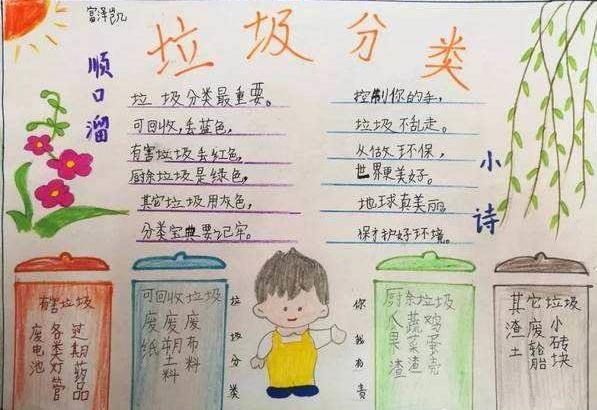 富泽凯
垃圾分类
顺口溜
垃圾分类最重要。
可回收,丢蓝色,
有害垃圾丢红色,
厨余垃圾是绿色,
其它垃圾用灰色,
分类宝典要记牢。
小诗
控制你的手,
垃圾不乱走。
从做环保,
世界更美好。
地球真美丽
保护好环境。
有害垃圾
过期药品
各类灯管
废电池
可回收垃圾
废布料
废
废纸
垃圾分类
你我有责
厨余垃圾
鸡蛋壳
蔬菜渣
瓜果渣
其它垃圾
小砖块
废轮胎
渣土